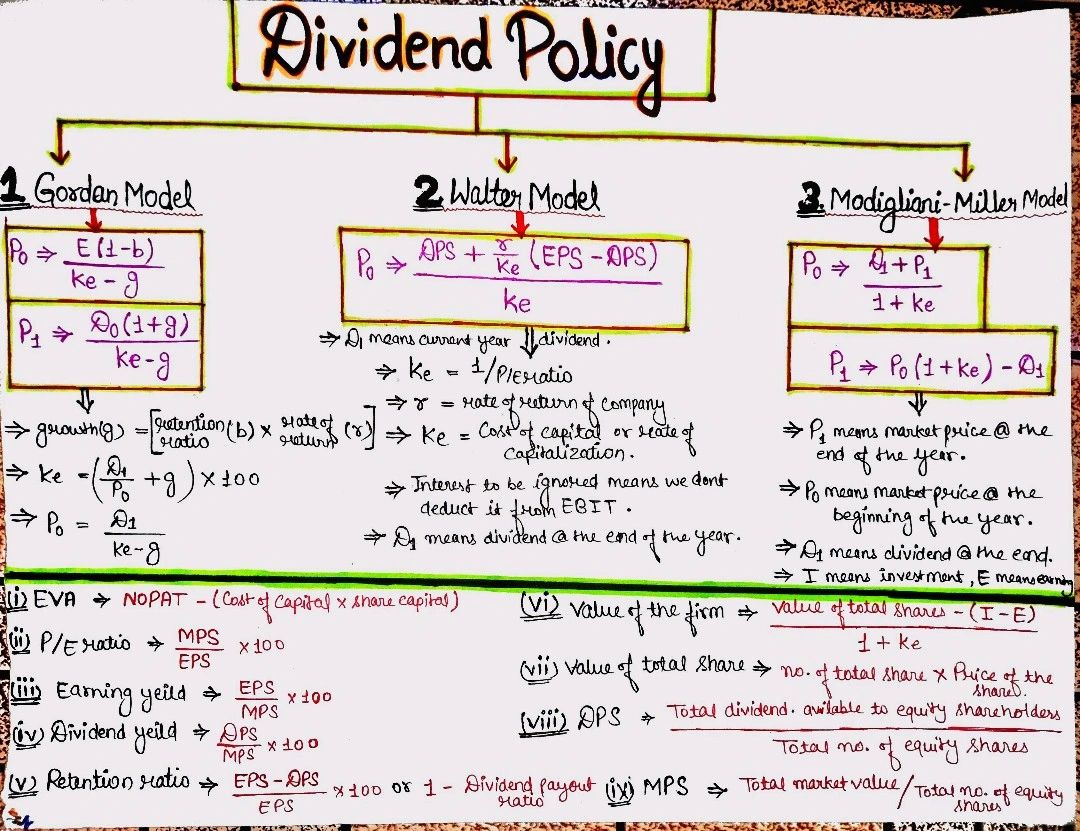 Dividend Policy
1 Gordan Model
P₀ ⇒ E(1-b) / ke - g
P₁ ⇒ D₀(1+g) / ke-g
⇒ growth(g) = [retention ratio (b) × rate of return (r)]
⇒ ke = (D₁/P₀ + g) × 100
⇒ P₀ = D₁ / ke-g
2. Walter Model
P₀ ⇒ DPS + r/ke (EPS - DPS) / ke
⇒ D₁ means current year dividend.
⇒ Ke = 1/P/E ratio
⇒ r = rate of return of company
⇒ Ke = Cost of capital or rate of
capitalization.
⇒ Interest to be ignored means we dont
deduct it from EBIT.
⇒ D₁ means dividend @ the end of the year.
3. Modigliani-Miller Model
P₀ ⇒ D₁ + P₁ / 1 + ke
P₁ ⇒ P₀ (1+ke) - D₁
⇒ P₁ means market price @ the
end of the year.
⇒ P₀ means market price @ the
beginning of the year.
⇒ D₁ means dividend @ the end.
⇒ I means investment, E means earning
(i) EVA ⇒ NOPAT - (Cost of Capital × share capital)
(ii) P/E ratio ⇒ MPS / EPS × 100
(iii) Earning yeild ⇒ EPS / MPS × 100
(iv) Dividend yeild ⇒ DPS / MPS × 100
(v) Retention ratio ⇒ EPS - DPS / EPS × 100 or 1 - Dividend payout ratio
(vi) Value of the firm ⇒ Value of total shares - (I - E) / 1 + ke
(vii) Value of total share ⇒ no. of total share × Price of the
share.
(viii) DPS ⇒ Total dividend. available to equity shareholders / Total no. of equity shares
(ix) MPS ⇒ Total market value / Total no. of equity
shares